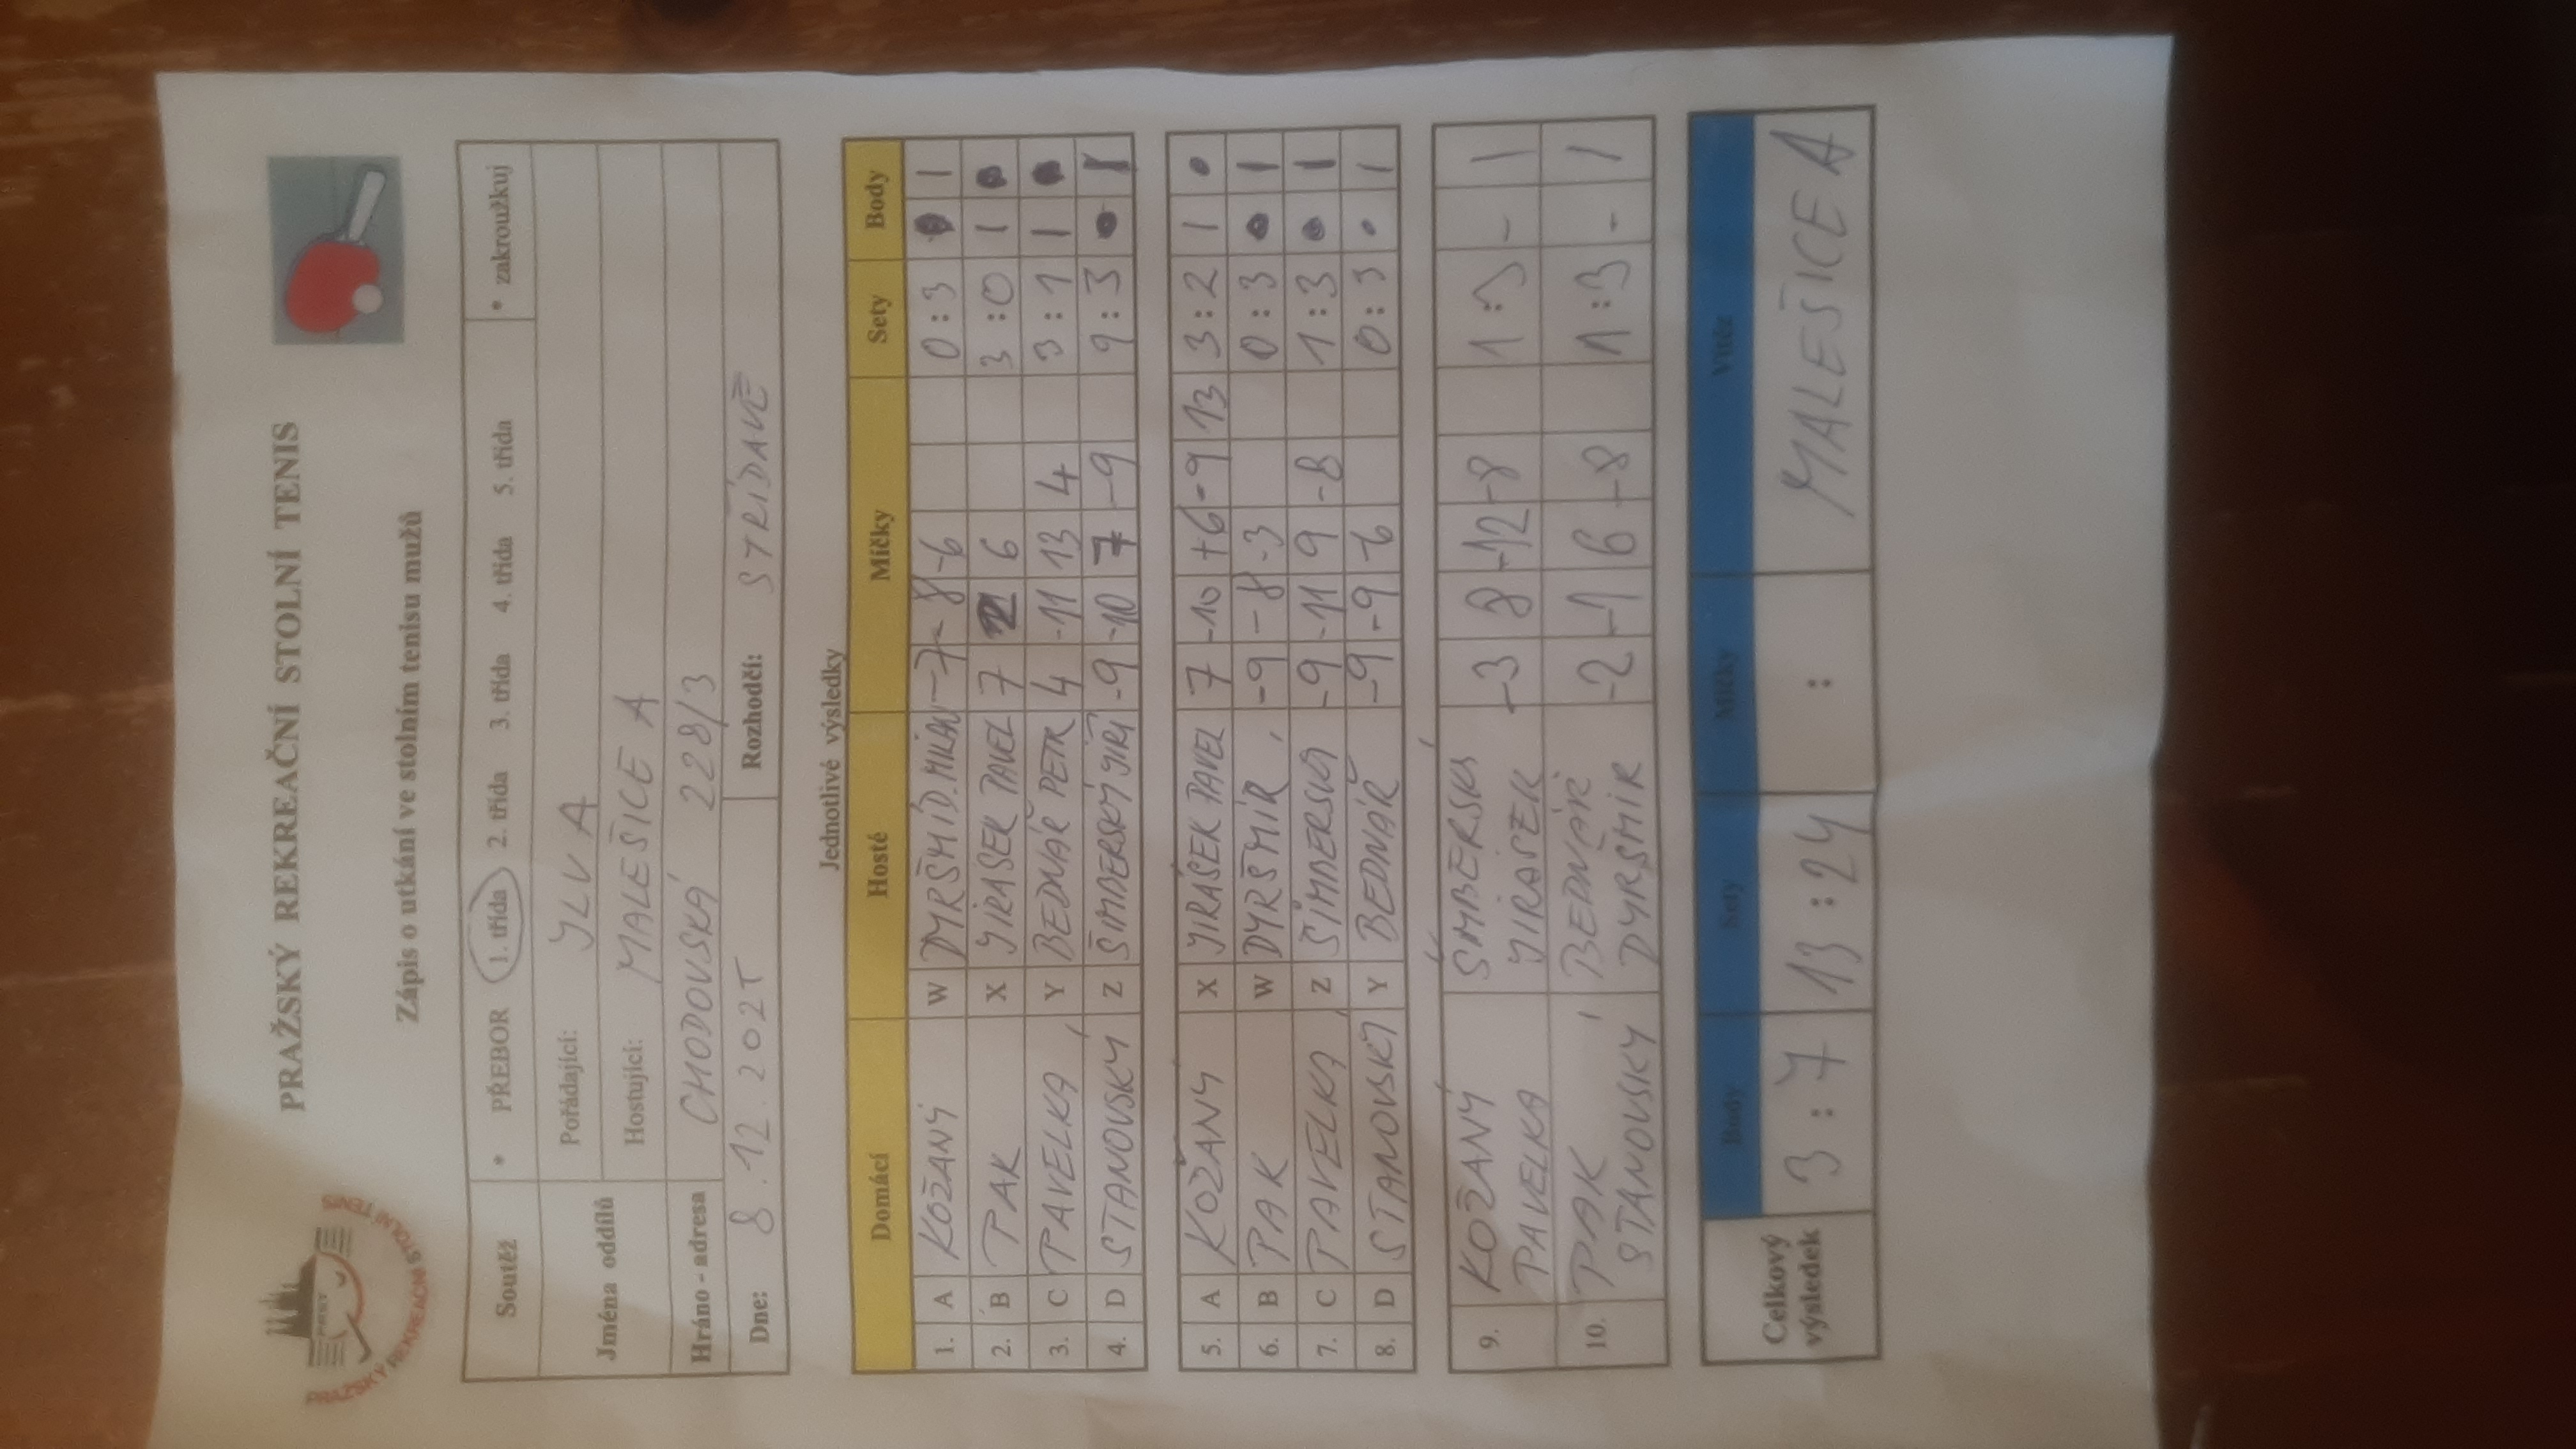 PRAŽSKÝ REKREAČNÍ STOLNÍ TENIS
PRAŽSKÝ REKREAČNÍ STOLNÍ TENIS
Zápis o utkání ve stolním tenisu mužů
Soutěž * PŘEBOR 1. třída 2. třída 3. třída 4. třída 5. třída * zakroužkuj
Jména oddílů Pořádající: JLV A
Hostující: MALEŠICE A
Hráno - adresa CHODOVSKÁ 228/3
Dne: 8.12.202T Rozhodčí: STŘÍDAVĚ
Jednotlivé výsledky
Domácí Hosté Míčky Sety Body
1. A KOŽANÝ W DYRŠMÍD. MILAN -7 -8 -6 0:3 0 1
2. B PAK X JIRÁSEK PAVEL 7 6 3:0 1 0
3. C PAVELKA Y BEDNÁŘ PETR 4 -11 13 4 3:1 1 0
4. D STANOVSKÝ Z ŠIMBERSKÝ JIŘÍ -9 -10 7 -9 9:3 0 1
5. A KOŽANÝ X JIRÁSEK PAVEL 7 -10 +6 -9 13 3:2 1 0
6. B PAK W DYRŠMÍR -9 -8 -3 0:3 0 1
7. C PAVELKA Z ŠIMBERSKÝ -9 -11 9 -8 1:3 0 1
8. D STANOVSKÝ Y BEDNÁŘ -9 -9 -6 0:3 0 1
9. KOŽANÝ ŠIMBERSKÝ -3 8 -12 -8 1:3 - 1
PAVELKA JIRÁSEK
10. PAK BEDNÁŘ -2 -1 6 -8 1:3 - 1
STANOVSKÝ DYRŠMÍR
Celkový výsledek Body Sety Míčky Vítěz
3:7 13:24 : MALEŠICE A